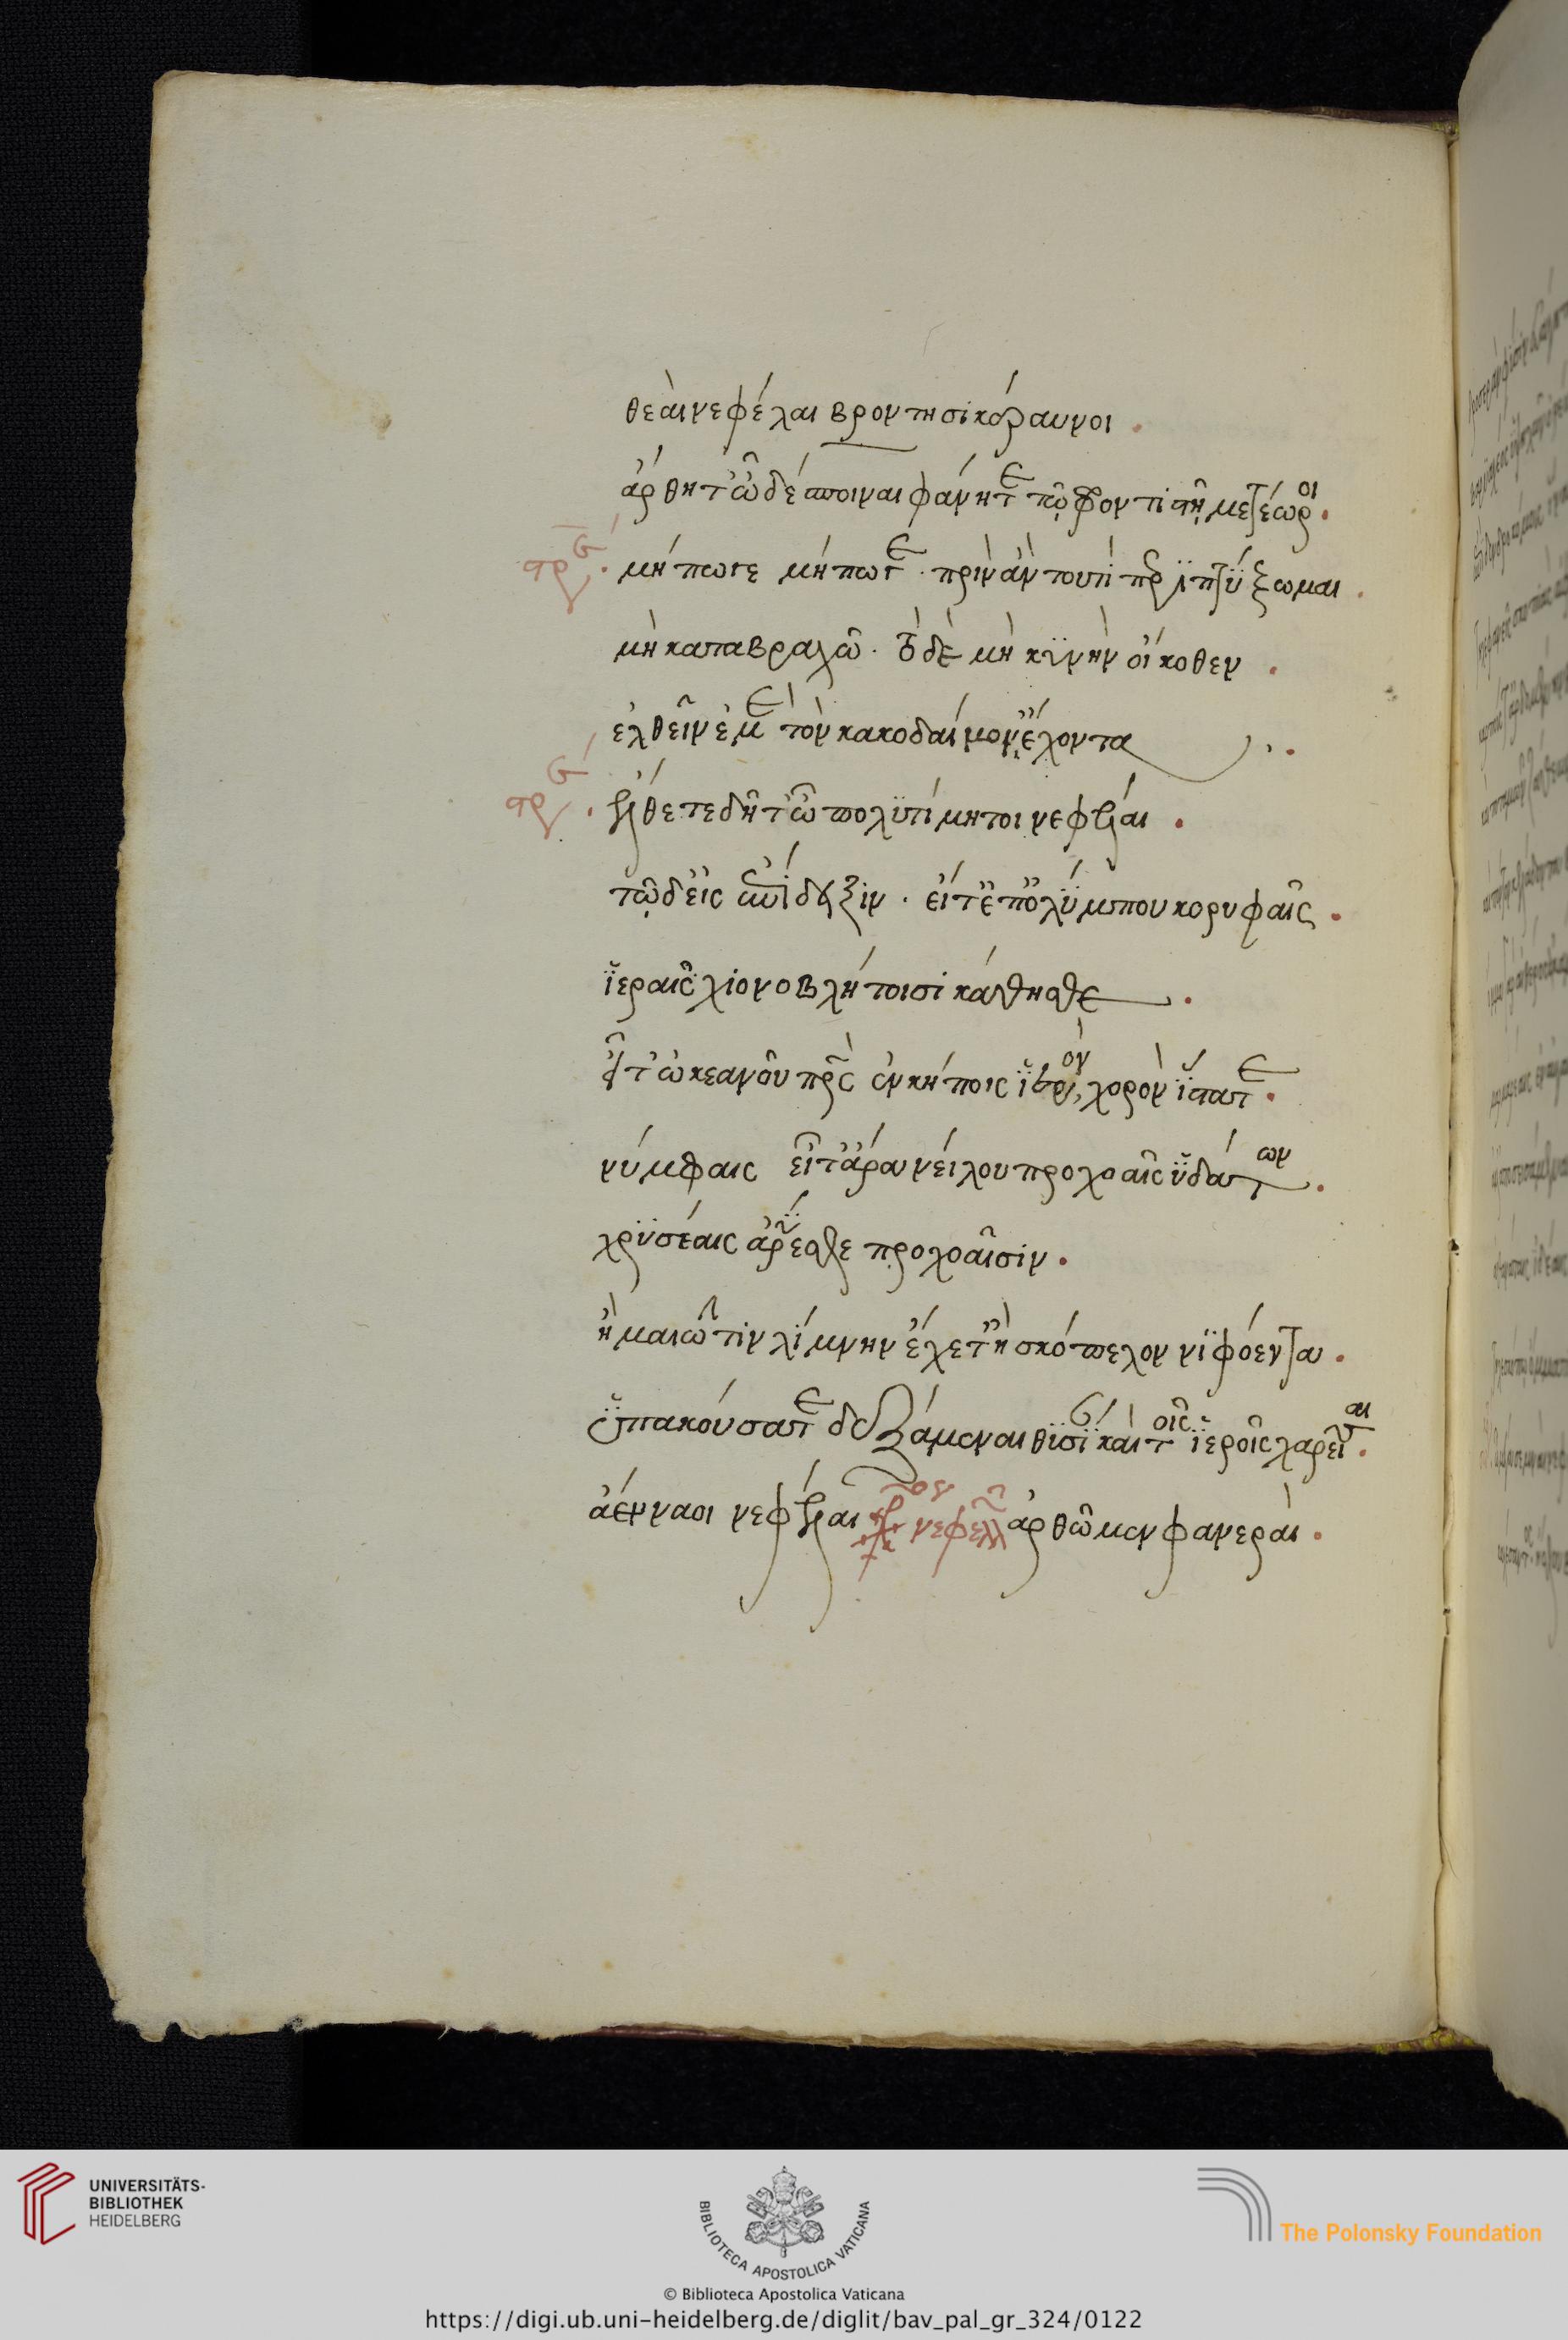 θεαὶ νεφέλαι βροντησικέραυνοι.
ἄρθητ' ὦ δέσποιναι φάνητε τῷ φροντιστῇ μετέωροι.
στρε μήπωτε μήπωτε. πρὶν ἂν τουτὶ πρὶ πτύξωμαι.
μὴ καταβραχῶ. τὸ δὲ μὴ κϋνῆν οἴκοθεν.
ἐλθεῖν ἐμὲ τὸν κακοδαίμον' ἔχοντα
στρε ἔλθετε δῆτ' ὦ πολϋτίμητοι νεφέλαι.
τῷδ' εἰς ἐπίδειξιν. εἴτ' ἐπ' ὀλύμπου κορυφαῖς.
ἱεραῖς χιονοβλήτοισι κάθησθε.
εἴτ' ὠκεανοῦ πρς ἐν κήποις ἱερὸν χορὸν ἵστατε.
νύμφαις εἴτ' ἄρα νείλου προχοαῖς ὑδάτων.
χρϋσέαις ἀρύεσθε προχοαῖσιν.
ἢ μαιῶτιν λίμνην ἔχετ' ἢ σκόπελον νιφόεντα.
ὑπακούσατε δεξάμεναι θϋσί καὶ τοῖς ἱεροῖς χαρεῖσαι.
ἀένναοι νεφέλαι χορ νεφελῶν ἀρθῶμεν φανεραὶ.
UNIVERSITÄTS-
BIBLIOTHEK
HEIDELBERG
BIBLIOTECA APOSTOLICA VATICANA
The Polonsky Foundation
© Biblioteca Apostolica Vaticana
https://digi.ub.uni-heidelberg.de/diglit/bav_pal_gr_324/0122